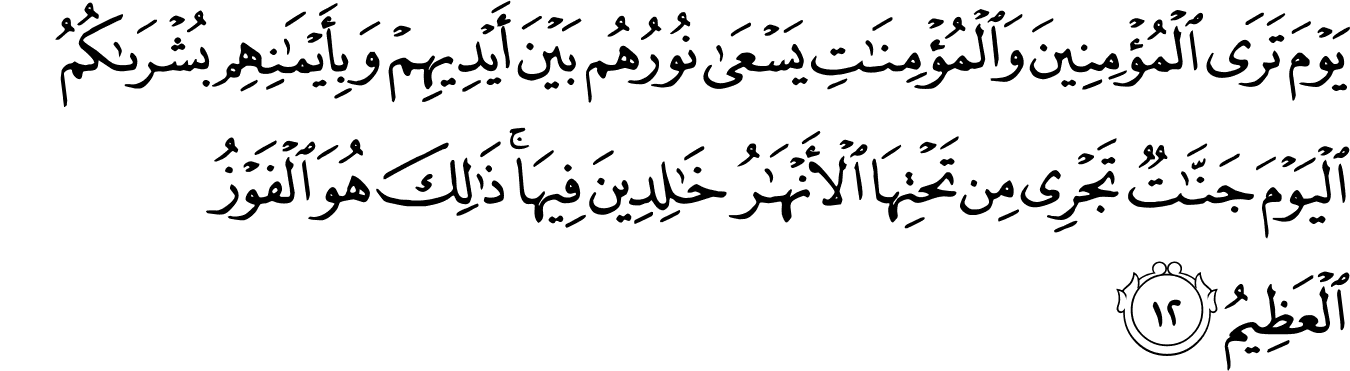 يَوْمَ تَرَى ٱلْمُؤْمِنِينَ وَٱلْمُؤْمِنَـٰتِ يَسْعَىٰ نُورُهُم بَيْنَ أَيْدِيهِمْ وَبِأَيْمَـٰنِهِم بُشْرَىٰكُمُ
ٱلْيَوْمَ جَنَّـٰتٌ تَجْرِى مِن تَحْتِهَا ٱلْأَنْهَـٰرُ خَـٰلِدِينَ فِيهَا ۚ ذَٰلِكَ هُوَ ٱلْفَوْزُ
ٱلْعَظِيمُ ١٢